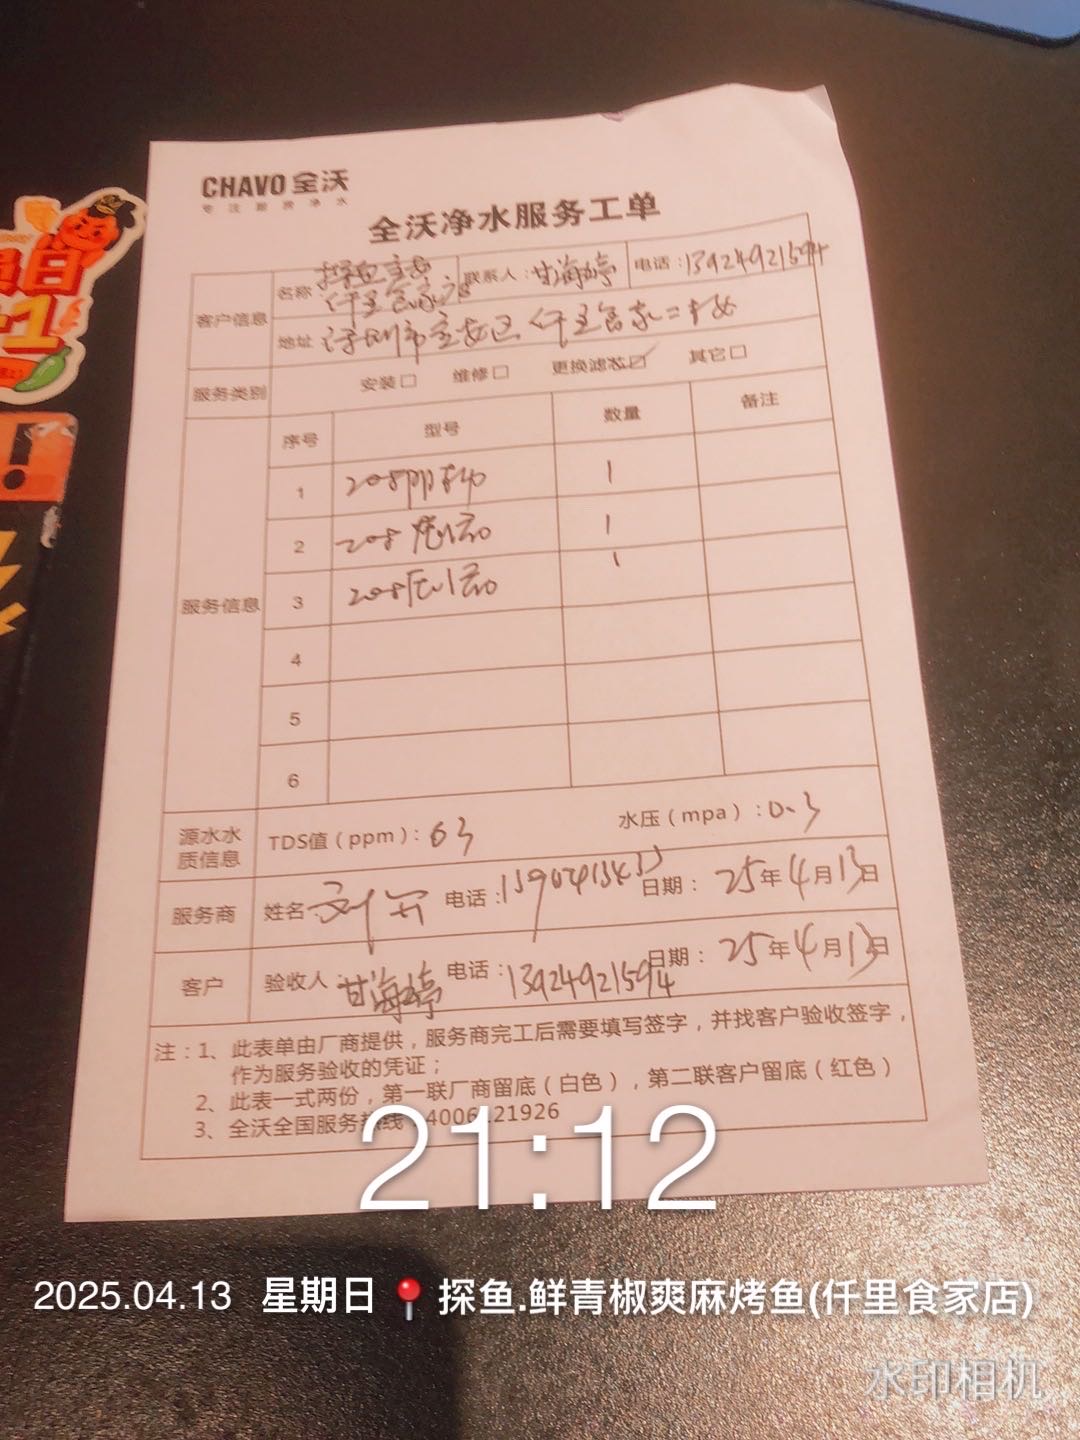 CHAVO 全沃
专注厨房净水
全沃净水服务工单
客户信息
名称：探鱼宝安仟里食家店 联系人：甘海婷 电话：13924921594
地址 深圳市宝安区仟里食家二楼
服务类别 安装□ 维修□ 更换滤芯☑ 其它□
服务信息
序号 型号 数量 备注
1 208 1
2 208 滤芯 1
3 208 滤芯 1
4
5
6
源水水质信息 TDS值（ppm）：63 水压（mpa）：0.3
服务商 姓名：刘 电话： 日期：25年4月13日
客户 验收人 甘海婷 电话：13924921594 日期：25年4月13日
注：1、此表单由厂商提供，服务商完工后需要填写签字，并找客户验收签字，
作为服务验收的凭证；
2、此表一式两份，第一联厂商留底（白色），第二联客户留底（红色）
3、全沃全国服务热线
21:12
2025.04.13 星期日 探鱼.鲜青椒爽麻烤鱼(仟里食家店)
水印相机